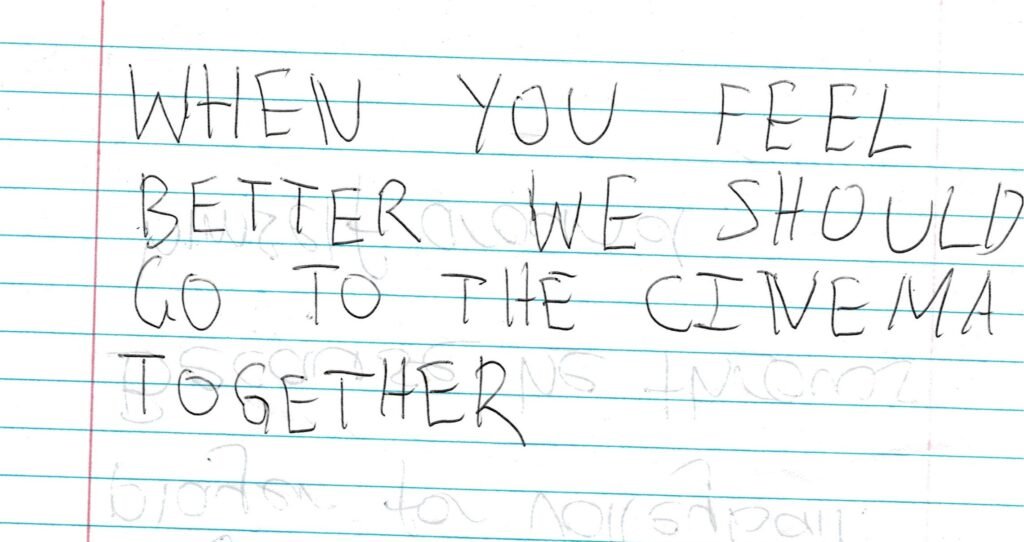 WHEN YOU FEEL
BETTER WE SHOULD
GO TO THE CINEMA
TOGETHER